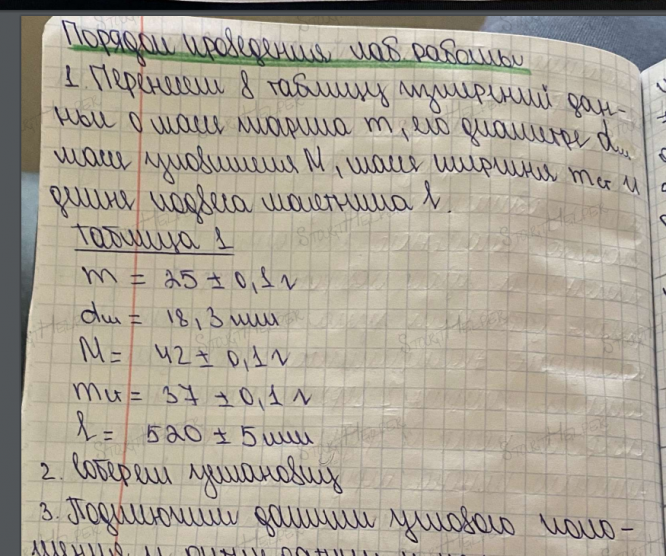 Порядок проведения лаб. работы
1. Перенесем в таблицу измерений дан-
ные о массе шарика m, его диаметре dш
массе уловителя M, массе стержня mст и
длине подвеса маятника l.
Таблица 1
m = 25 ± 0,1 г
dш = 18,3 мм
M = 42 ± 0,1 г
mст = 37 ± 0,1 г
l = 520 ± 5 мм
2. Соберем установку
3. Подключим датчик углового поло-
жения и